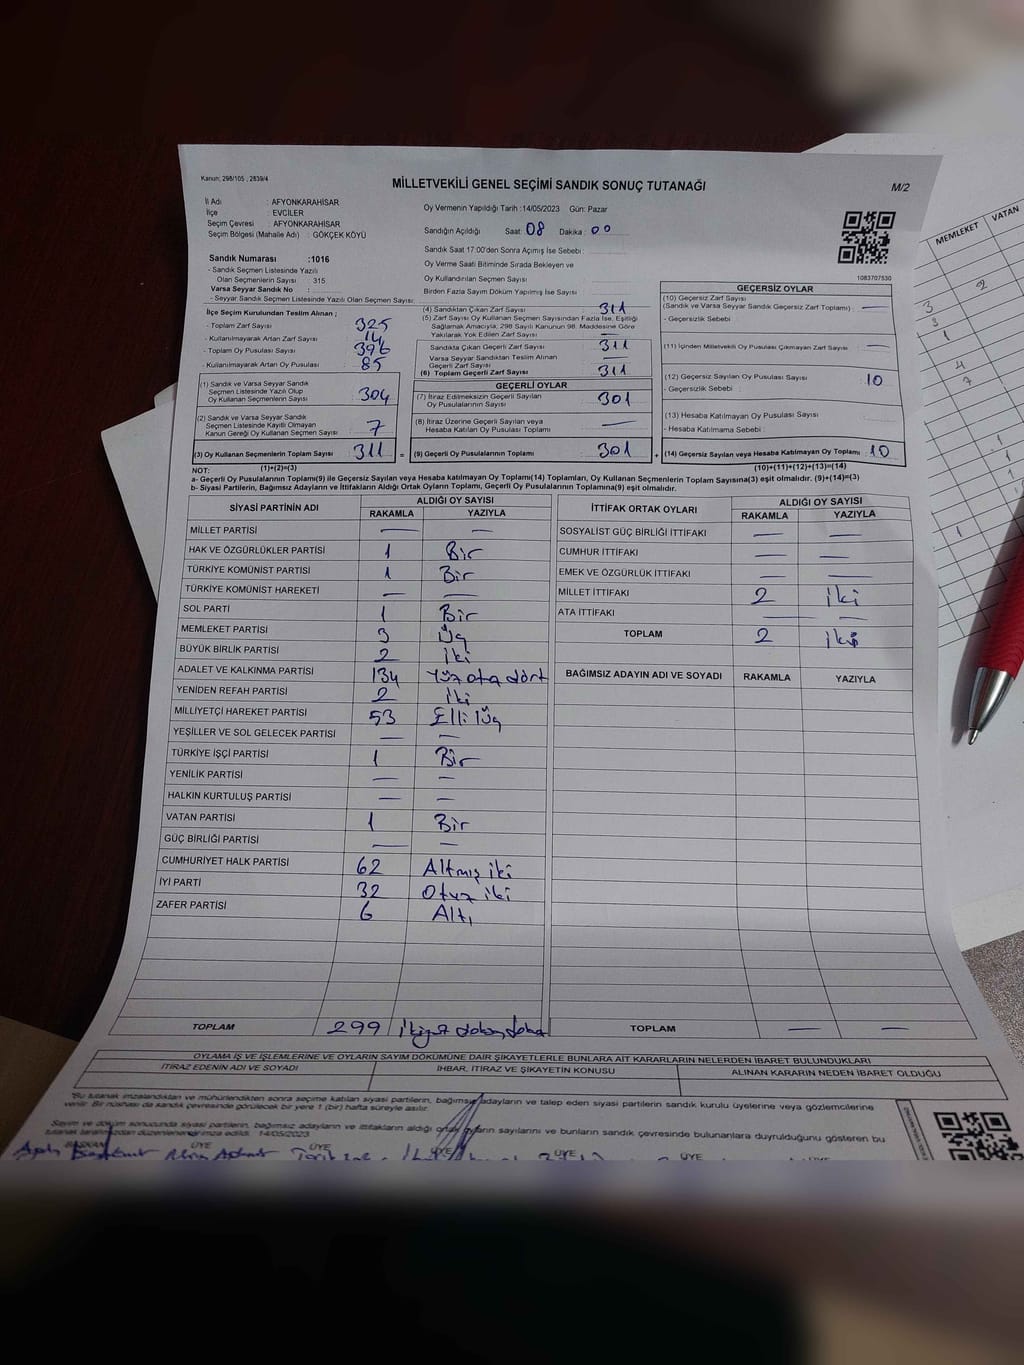 Kanun: 298/105 ; 2839/4
MİLLETVEKİLİ GENEL SEÇİMİ SANDIK SONUÇ TUTANAĞI
M/2
İl Adı : AFYONKARAHİSAR
İlçe : EVCİLER
Seçim Çevresi : AFYONKARAHİSAR
Seçim Bölgesi (Mahalle Adı) : GÖKÇEK KÖYÜ
Sandık Numarası :1016
- Sandık Seçmen Listesinde Yazılı
Olan Seçmenlerin Sayısı : 315
Varsa Seyyar Sandık No :
- Seyyar Sandık Seçmen Listesinde Yazılı Olan Seçmen Sayısı:
Oy Vermenin Yapıldığı Tarih :14/05/2023 Gün: Pazar
Sandığın Açıldığı Saat: 08 Dakika : 00
Sandık Saat 17:00'den Sonra Açımış İse Sebebi :
Oy Verme Saati Bitiminde Sırada Bekleyen ve
Oy Kullandırılan Seçmen Sayısı :
Birden Fazla Sayım Döküm Yapılmış İse Sayısı :
1083707530
İlçe Seçim Kurulundan Teslim Alınan ;
- Toplam Zarf Sayısı : 325
- Kullanılmayarak Artan Zarf Sayısı : 14
- Toplam Oy Pusulası Sayısı : 396
- Kullanılmayarak Artan Oy Pusulası : 85
(1) Sandık ve Varsa Seyyar Sandık
Seçmen Listesinde Yazılı Olup
Oy Kullanan Seçmenlerin Sayısı : 304
(2) Sandık ve Varsa Seyyar Sandık
Seçmen Listesinde Kayıtlı Olmayan
Kanun Gereği Oy Kullanan Seçmen Sayısı : 7
(3) Oy Kullanan Seçmenlerin Toplam Sayısı : 311 =
(1)+(2)=(3)
(4) Sandıktan Çıkan Zarf Sayısı : 311
(5) Zarf Sayısı Oy Kullanan Seçmen Sayısından Fazla İse, Eşitliği
Sağlamak Amacıyla; 298 Sayılı Kanunun 98. Maddesine Göre
Yakılarak Yok Edilen Zarf Sayısı : —
Sandıkta Çıkan Geçerli Zarf Sayısı : 311
Varsa Seyyar Sandıktan Teslim Alınan
Geçerli Zarf Sayısı : —
(6) Toplam Geçerli Zarf Sayısı : 311
GEÇERLİ OYLAR
(7) İtiraz Edilmeksizin Geçerli Sayılan
Oy Pusulalarının Sayısı : 301
(8) İtiraz Üzerine Geçerli Sayılan veya
Hesaba Katılan Oy Pusulası Toplamı : —
(9) Geçerli Oy Pusulalarının Toplamı : 301 +
GEÇERSİZ OYLAR
(10) Geçersiz Zarf Sayısı
(Sandık ve Varsa Seyyar Sandık Geçersiz Zarf Toplamı) : —
- Geçersizlik Sebebi :
(11) İçinden Milletvekili Oy Pusulası Çıkmayan Zarf Sayısı : —
(12) Geçersiz Sayılan Oy Pusulası Sayısı : 10
- Geçersizlik Sebebi :
(13) Hesaba Katılmayan Oy Pusulası Sayısı :
- Hesaba Katılmama Sebebi :
(14) Geçersiz Sayılan veya Hesaba Katılmayan Oy Toplamı : 10
(10)+(11)+(12)+(13)=(14)
NOT:
a- Geçerli Oy Pusulalarının Toplamı(9) ile Geçersiz Sayılan veya Hesaba Katılmayan Oy Toplamı(14) Toplamları, Oy Kullanan Seçmenlerin Toplam Sayısına(3) eşit olmalıdır. (9)+(14)=(3)
b- Siyasi Partilerin, Bağımsız Adayların ve İttifakların Aldığı Ortak Oyların Toplamı, Geçerli Oy Pusulalarının Toplamına(9) eşit olmalıdır.
SİYASİ PARTİNİN ADI ALDIĞI OY SAYISI
RAKAMLA YAZIYLA
MİLLET PARTİSİ — —
HAK VE ÖZGÜRLÜKLER PARTİSİ 1 Bir
TÜRKİYE KOMÜNİST PARTİSİ 1 Bir
TÜRKİYE KOMÜNİST HAREKETİ — —
SOL PARTİ 1 Bir
MEMLEKET PARTİSİ 3 Üç
BÜYÜK BİRLİK PARTİSİ 2 iki
ADALET VE KALKINMA PARTİSİ 134 Yüz otuz dört
YENİDEN REFAH PARTİSİ 2 iki
MİLLİYETÇİ HAREKET PARTİSİ 53 Elli Üç
YEŞİLLER VE SOL GELECEK PARTİSİ — —
TÜRKİYE İŞÇİ PARTİSİ 1 Bir
YENİLİK PARTİSİ — —
HALKIN KURTULUŞ PARTİSİ — —
VATAN PARTİSİ 1 Bir
GÜÇ BİRLİĞİ PARTİSİ — —
CUMHURİYET HALK PARTİSİ 62 Altmış iki
İYİ PARTİ 32 Otuz iki
ZAFER PARTİSİ 6 Altı
TOPLAM 299
İTTİFAK ORTAK OYLARI ALDIĞI OY SAYISI
RAKAMLA YAZIYLA
SOSYALİST GÜÇ BİRLİĞİ İTTİFAKI — —
CUMHUR İTTİFAKI — —
EMEK VE ÖZGÜRLÜK İTTİFAKI — —
MİLLET İTTİFAKI 2 iki
ATA İTTİFAKI — —
TOPLAM 2 iki
BAĞIMSIZ ADAYIN ADI VE SOYADI RAKAMLA YAZIYLA
TOPLAM — —
OYLAMA İŞ VE İŞLEMLERİNE VE OYLARIN SAYIM DÖKÜMÜNE DAİR ŞİKAYETLERLE BUNLARA AİT KARARLARIN NELERDEN İBARET BULUNDUKLARI
İTİRAZ EDENİN ADI VE SOYADI İHBAR, İTİRAZ VE ŞİKAYETİN KONUSU ALINAN KARARIN NEDEN İBARET OLDUĞU
"Bu tutanak imzalandıktan ve mühürlendikten sonra seçime katılan siyasi partilerin, bağımsız adayların ve talep eden siyasi partilerin sandık kurulu üyelerine veya gözlemcilerine
verilir. Bir nüshası da sandık çevresinde görülecek bir yere 1 (bir) hafta süreyle asılır.
Sayım ve döküm sonucunda siyasi partilerin, bağımsız adayların ve ittifakların aldığı ortak oyların sayılarını ve bunların sandık çevresinde bulunanlara duyrulduğunu gösteren bu
tutanak tarafımızdan düzenlenerek imza edildi. 14/05/2023
BAŞKAN ÜYE ÜYE ÜYE ÜYE ÜYE ÜYE
MEMLEKET VATAN
3 2
3
1
4
7
1
1
1
1